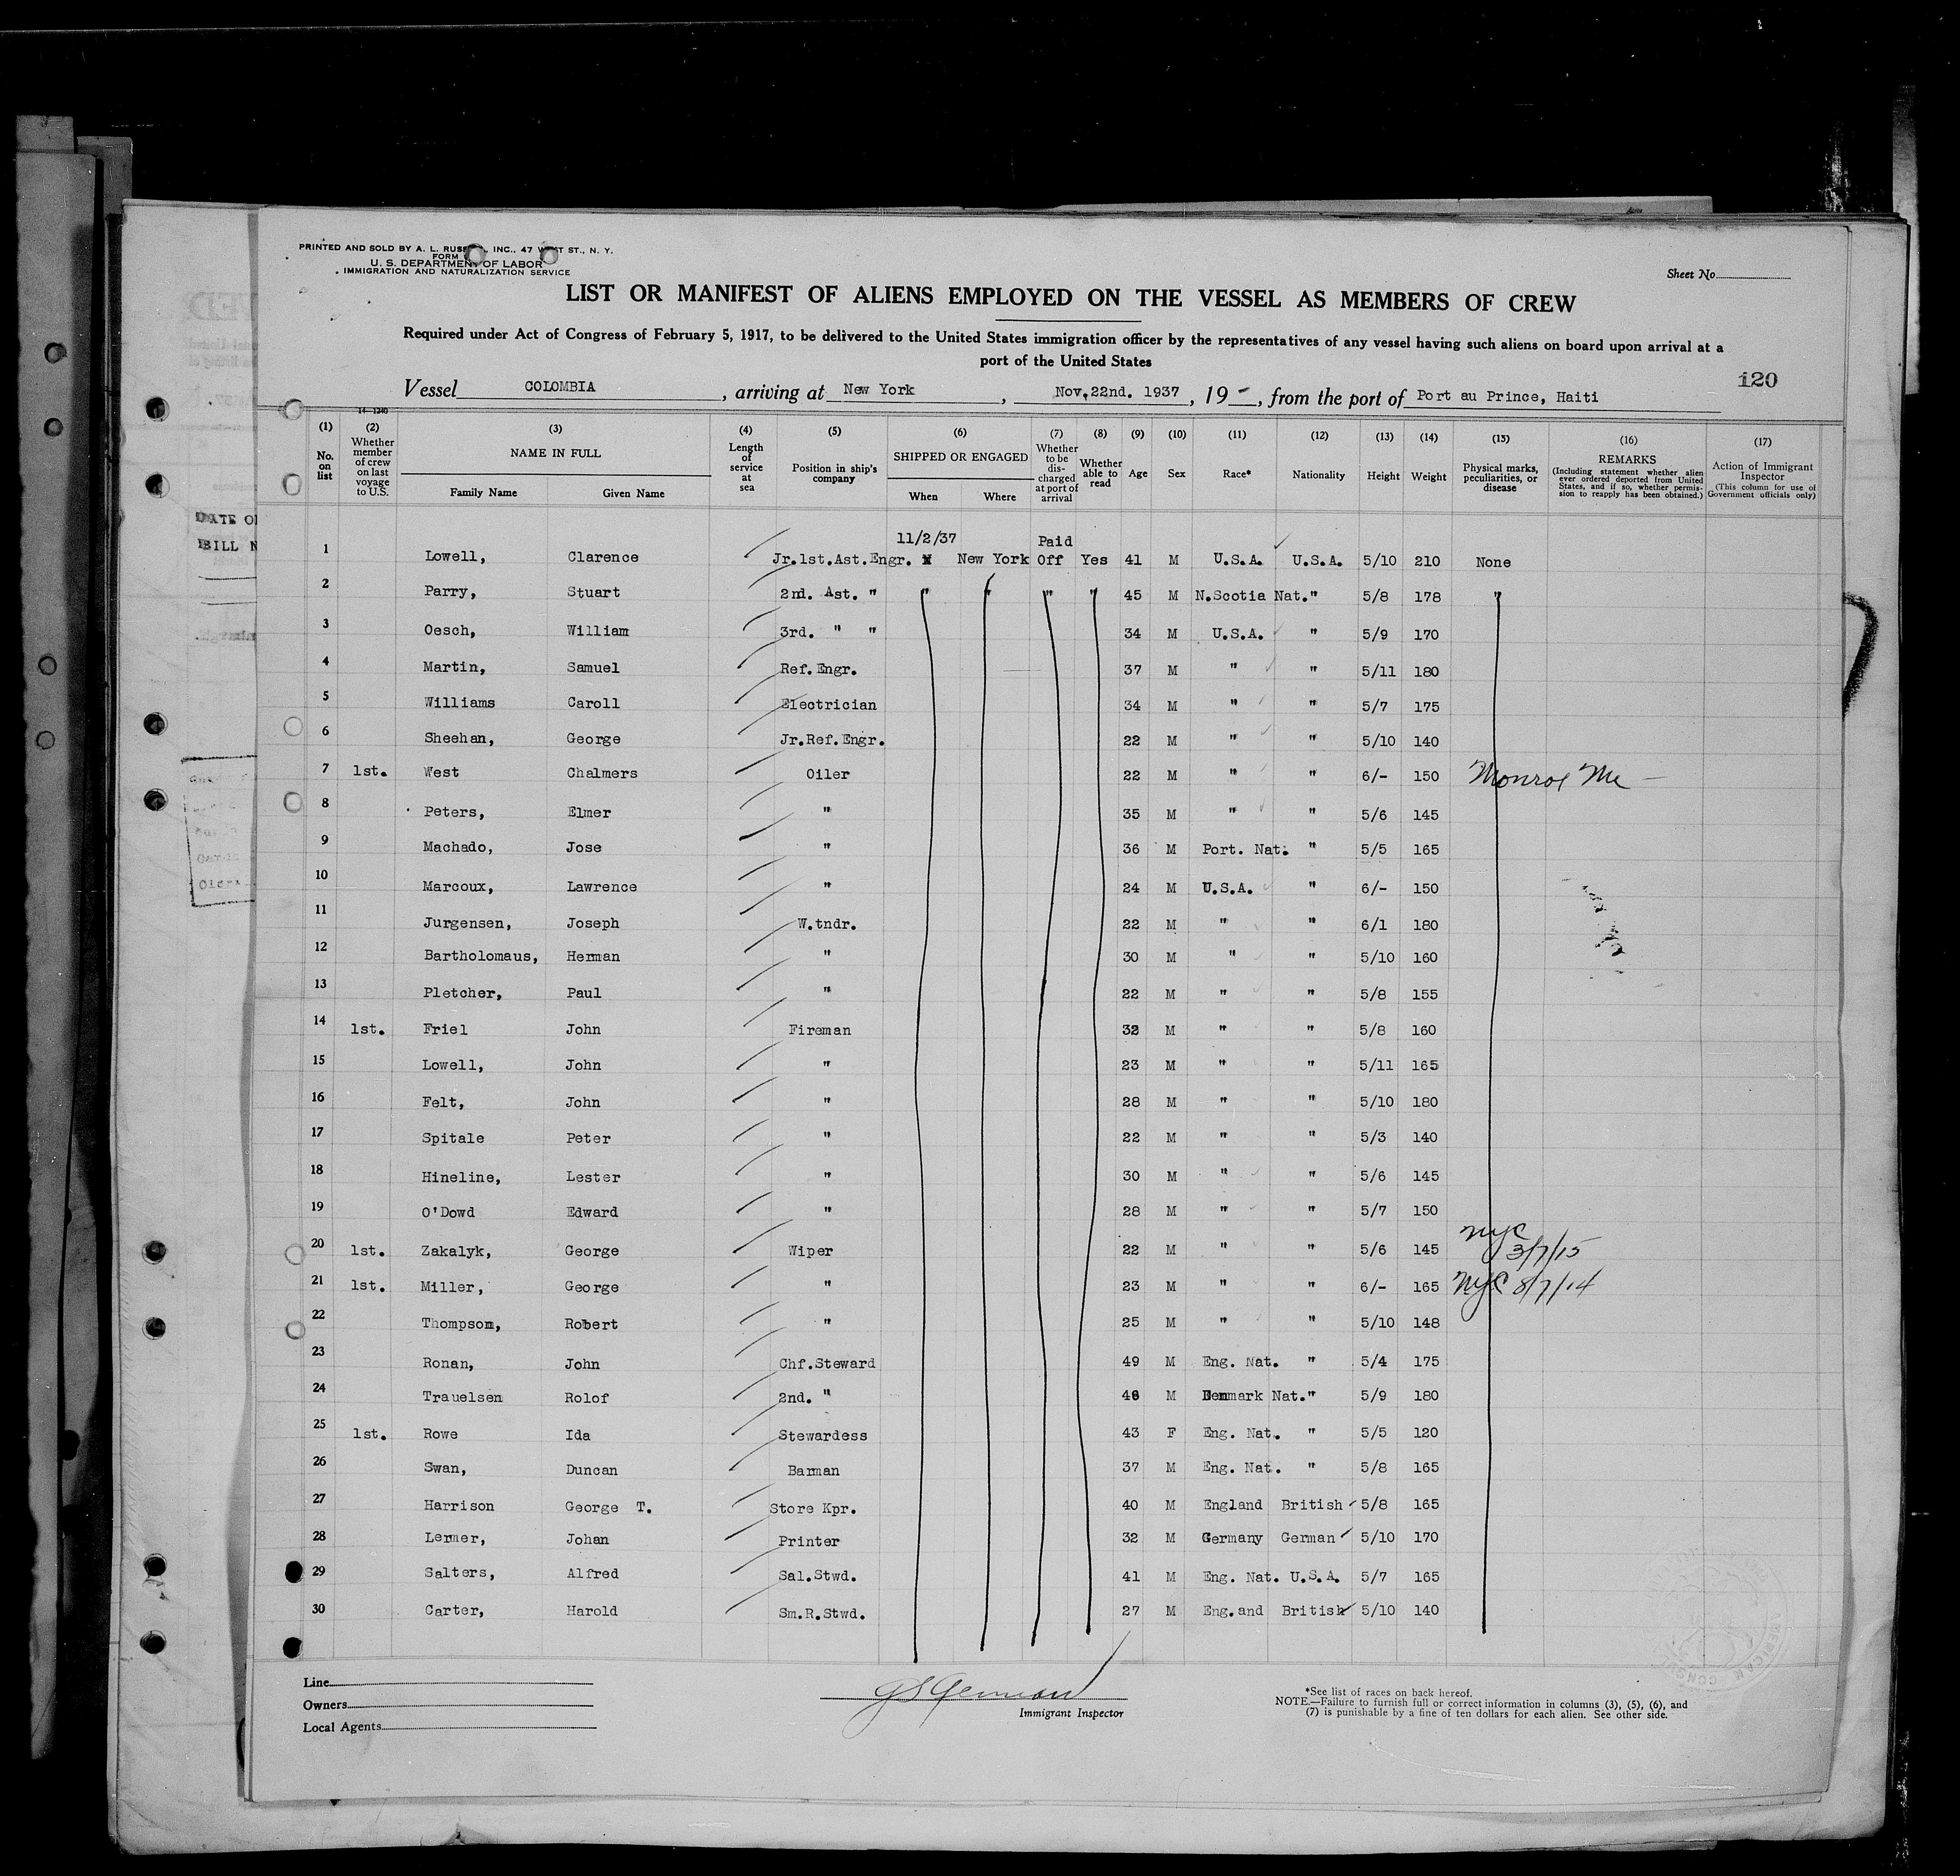 PRINTED AND SOLD BY A. L. RUSS INC., 47 ST., N. Y.
FORM
U. S. DEPARTMENT OF LABOR
IMMIGRATION AND NATURALIZATION SERVICE
Sheet No
LIST OR MANIFEST OF ALIENS EMPLOYED ON THE VESSEL AS MEMBERS OF CREW
Required under Act of Congress of February 5, 1917, to be delivered to the United States immigration officer by the representatives of any vessel having such aliens on board upon arrival at a
port of the United States
120
Vessel COLOMBIA, arriving at New York, Nov.22nd. 1937, 19 -, from the port of Port au Prince, Haiti
14—1240
(1) No. on list
(2) Whether member of crew on last voyage to U.S.
(3) NAME IN FULL Family Name Given Name
(4) Length of service at sea
(5) Position in ship's company
(6) SHIPPED OR ENGAGED When Where
(7) Whether to be discharged at port of arrival
(8) Whether able to read
(9) Age
(10) Sex
(11) Race*
(12) Nationality
(13) Height
(14) Weight
(15) Physical marks, peculiarities, or disease
(16) REMARKS (Including statement whether alien ever ordered deported from United States, and if so, whether permission to reapply has been obtained.)
(17) Action of Immigrant Inspector (This column for use of Government officials only)
1 Lowell, Clarence Jr.1st.Ast.Engr. 11/2/37 New York Paid Off Yes 41 M U.S.A. U.S.A. 5/10 210 None
2 Parry, Stuart 2nd. Ast. " " " " " 45 M N.Scotia Nat. " 5/8 178 "
3 Oesch, William 3rd. " " 34 M U.S.A. " 5/9 170
4 Martin, Samuel Ref.Engr. 37 M " " 5/11 180
5 Williams Caroll Electrician 34 M " " 5/7 175
6 Sheehan, George Jr.Ref.Engr. 22 M " " 5/10 140
7 1st. West Chalmers Oiler 22 M " " 6/- 150 Monroe Me —
8 Peters, Elmer " 35 M " " 5/6 145
9 Machado, Jose " 36 M Port. Nat. " 5/5 165
10 Marcoux, Lawrence " 24 M U.S.A. " 6/- 150
11 Jurgensen, Joseph W.tndr. 22 M " " 6/1 180
12 Bartholomaus, Herman " 30 M " " 5/10 160
13 Pletcher, Paul " 22 M " " 5/8 155
14 1st. Friel John Fireman 32 M " " 5/8 160
15 Lowell, John " 23 M " " 5/11 165
16 Felt, John " 28 M " " 5/10 180
17 Spitale Peter " 22 M " " 5/3 140
18 Hineline, Lester " 30 M " " 5/6 145
19 O'Dowd Edward " 28 M " " 5/7 150
20 1st. Zakalyk, George Wiper 22 M " " 5/6 145 NYC 3/7/15
21 1st. Miller, George " 23 M " " 6/- 165 NYC 8/7/14
22 Thompson, Robert " 25 M " " 5/10 148
23 Ronan, John Chf.Steward 49 M Eng. Nat. " 5/4 175
24 Trauelsen Rolof 2nd. " 46 M Denmark Nat. " 5/9 180
25 1st. Rowe Ida Stewardess 43 F Eng. Nat. " 5/5 120
26 Swan, Duncan Barman 37 M Eng. Nat. " 5/8 165
27 Harrison George T. Store Kpr. 40 M England British 5/8 165
28 Lerner, Johan Printer 32 M Germany German 5/10 170
29 Salters, Alfred Sal.Stwd. 41 M Eng. Nat. U.S.A. 5/7 165
30 Carter, Harold Sm.R.Stwd. 27 M Eng.and British 5/10 140
Line
Owners
Local Agents
Immigrant Inspector
*See list of races on back hereof.
NOTE.—Failure to furnish full or correct information in columns (3), (5), (6), and
(7) is punishable by a fine of ten dollars for each alien. See other side.
DATE O
BILL N